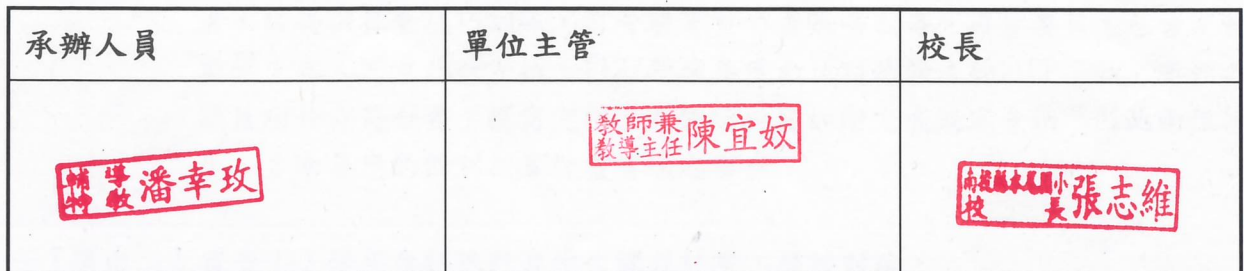 承辦人員
單位主管
校長
輔導
特教
潘幸玫
教師兼
教導主任
陳宜妏
南投縣水尾國小
校長
張志維